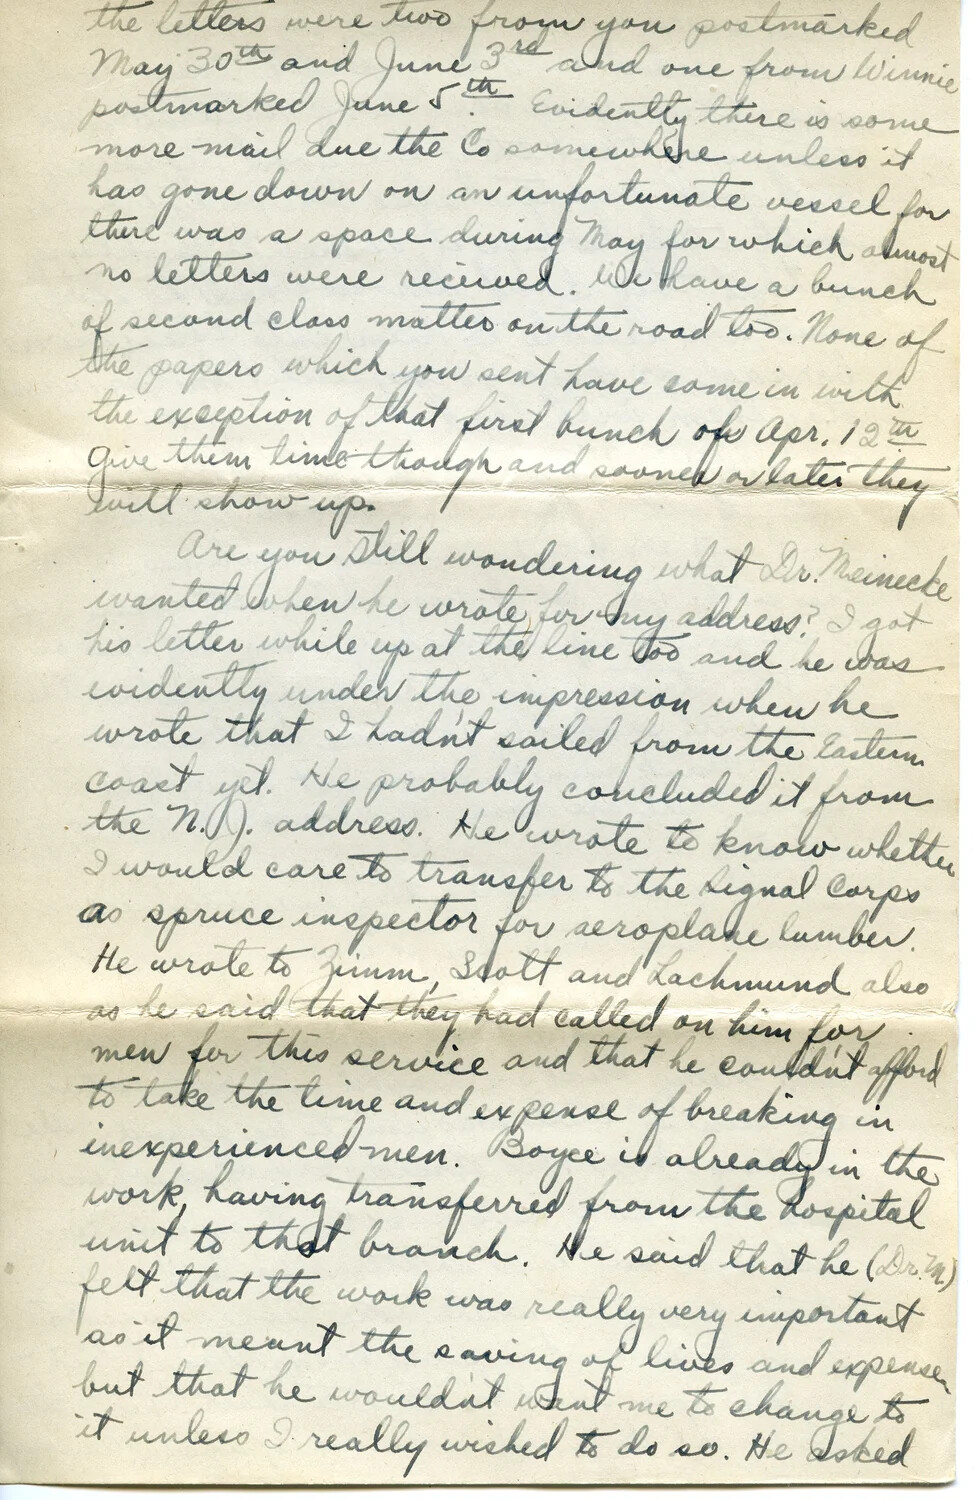 the letters were two from you postmarked
May 30th and June 3rd and one from Winnie
postmarked June 5th. Evidently there is some
more mail due the Co somewhere unless it
has gone down on an unfortunate vessel for
there was a space during May for which almost
no letters were received. We have a bunch
of second class matter on the road too. None of
the papers which you sent have come in with
the exception of that first bunch of Apr. 12th
Give them time though and sooner or later they
will show up.
Are you still wondering what Dr. Meinecke
wanted when he wrote for my address? I got
his letter while up at the line too and he was
evidently under the impression when he
wrote that I hadn't sailed from the Eastern
coast yet. He probably concluded it from
the N.J. address. He wrote to know whether
I would care to transfer to the Signal Corps
as spruce inspector for aeroplane lumber.
He wrote to Zimm, Scott and Lachmund also
as he said that they had called on him for
men for this service and that he couldn't afford
to take the time and expense of breaking in
inexperienced men. Boyce is already in the
work, having transferred from the hospital
unit to that branch. He said that he (Dr. M)
felt that the work was really very important
as it meant the saving of lives and expense
but that he wouldn't want me to change to
it unless I really wished to do so. He asked